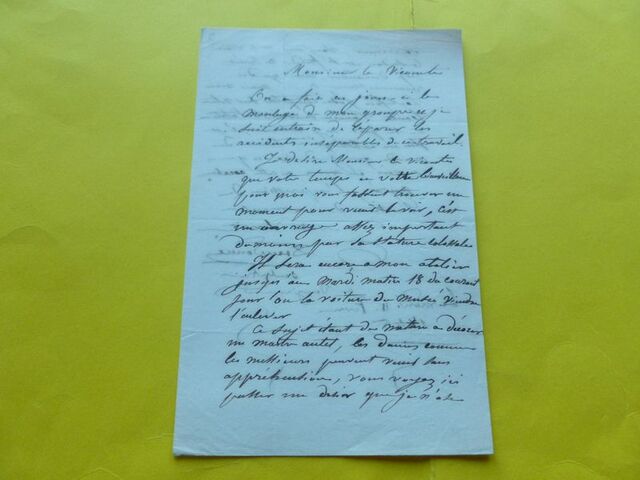 Monsieur le Vicomte
On a fait ces jours ci le
moulage de mon groupe et je
suis entrain de réparer les
accidents inséparables de ce travail.
Je désire Monsieur le Vicomte
que votre temps et votre bienveillance
pour moi vous fassent trouver un
moment pour venir le voir, c'est
un ouvrage assez important
du moins par sa stature colossale
Il sera encore à mon atelier
jusqu'au mardi matin 18 du courant
jour où la voiture du Musée viendra
l'enlever
Ce sujet étant de nature à décorer
un maitre autel, les dames comme
les messieurs peuvent venir sans
appréhention, vous voyez ici
passer un désir que je n'ose